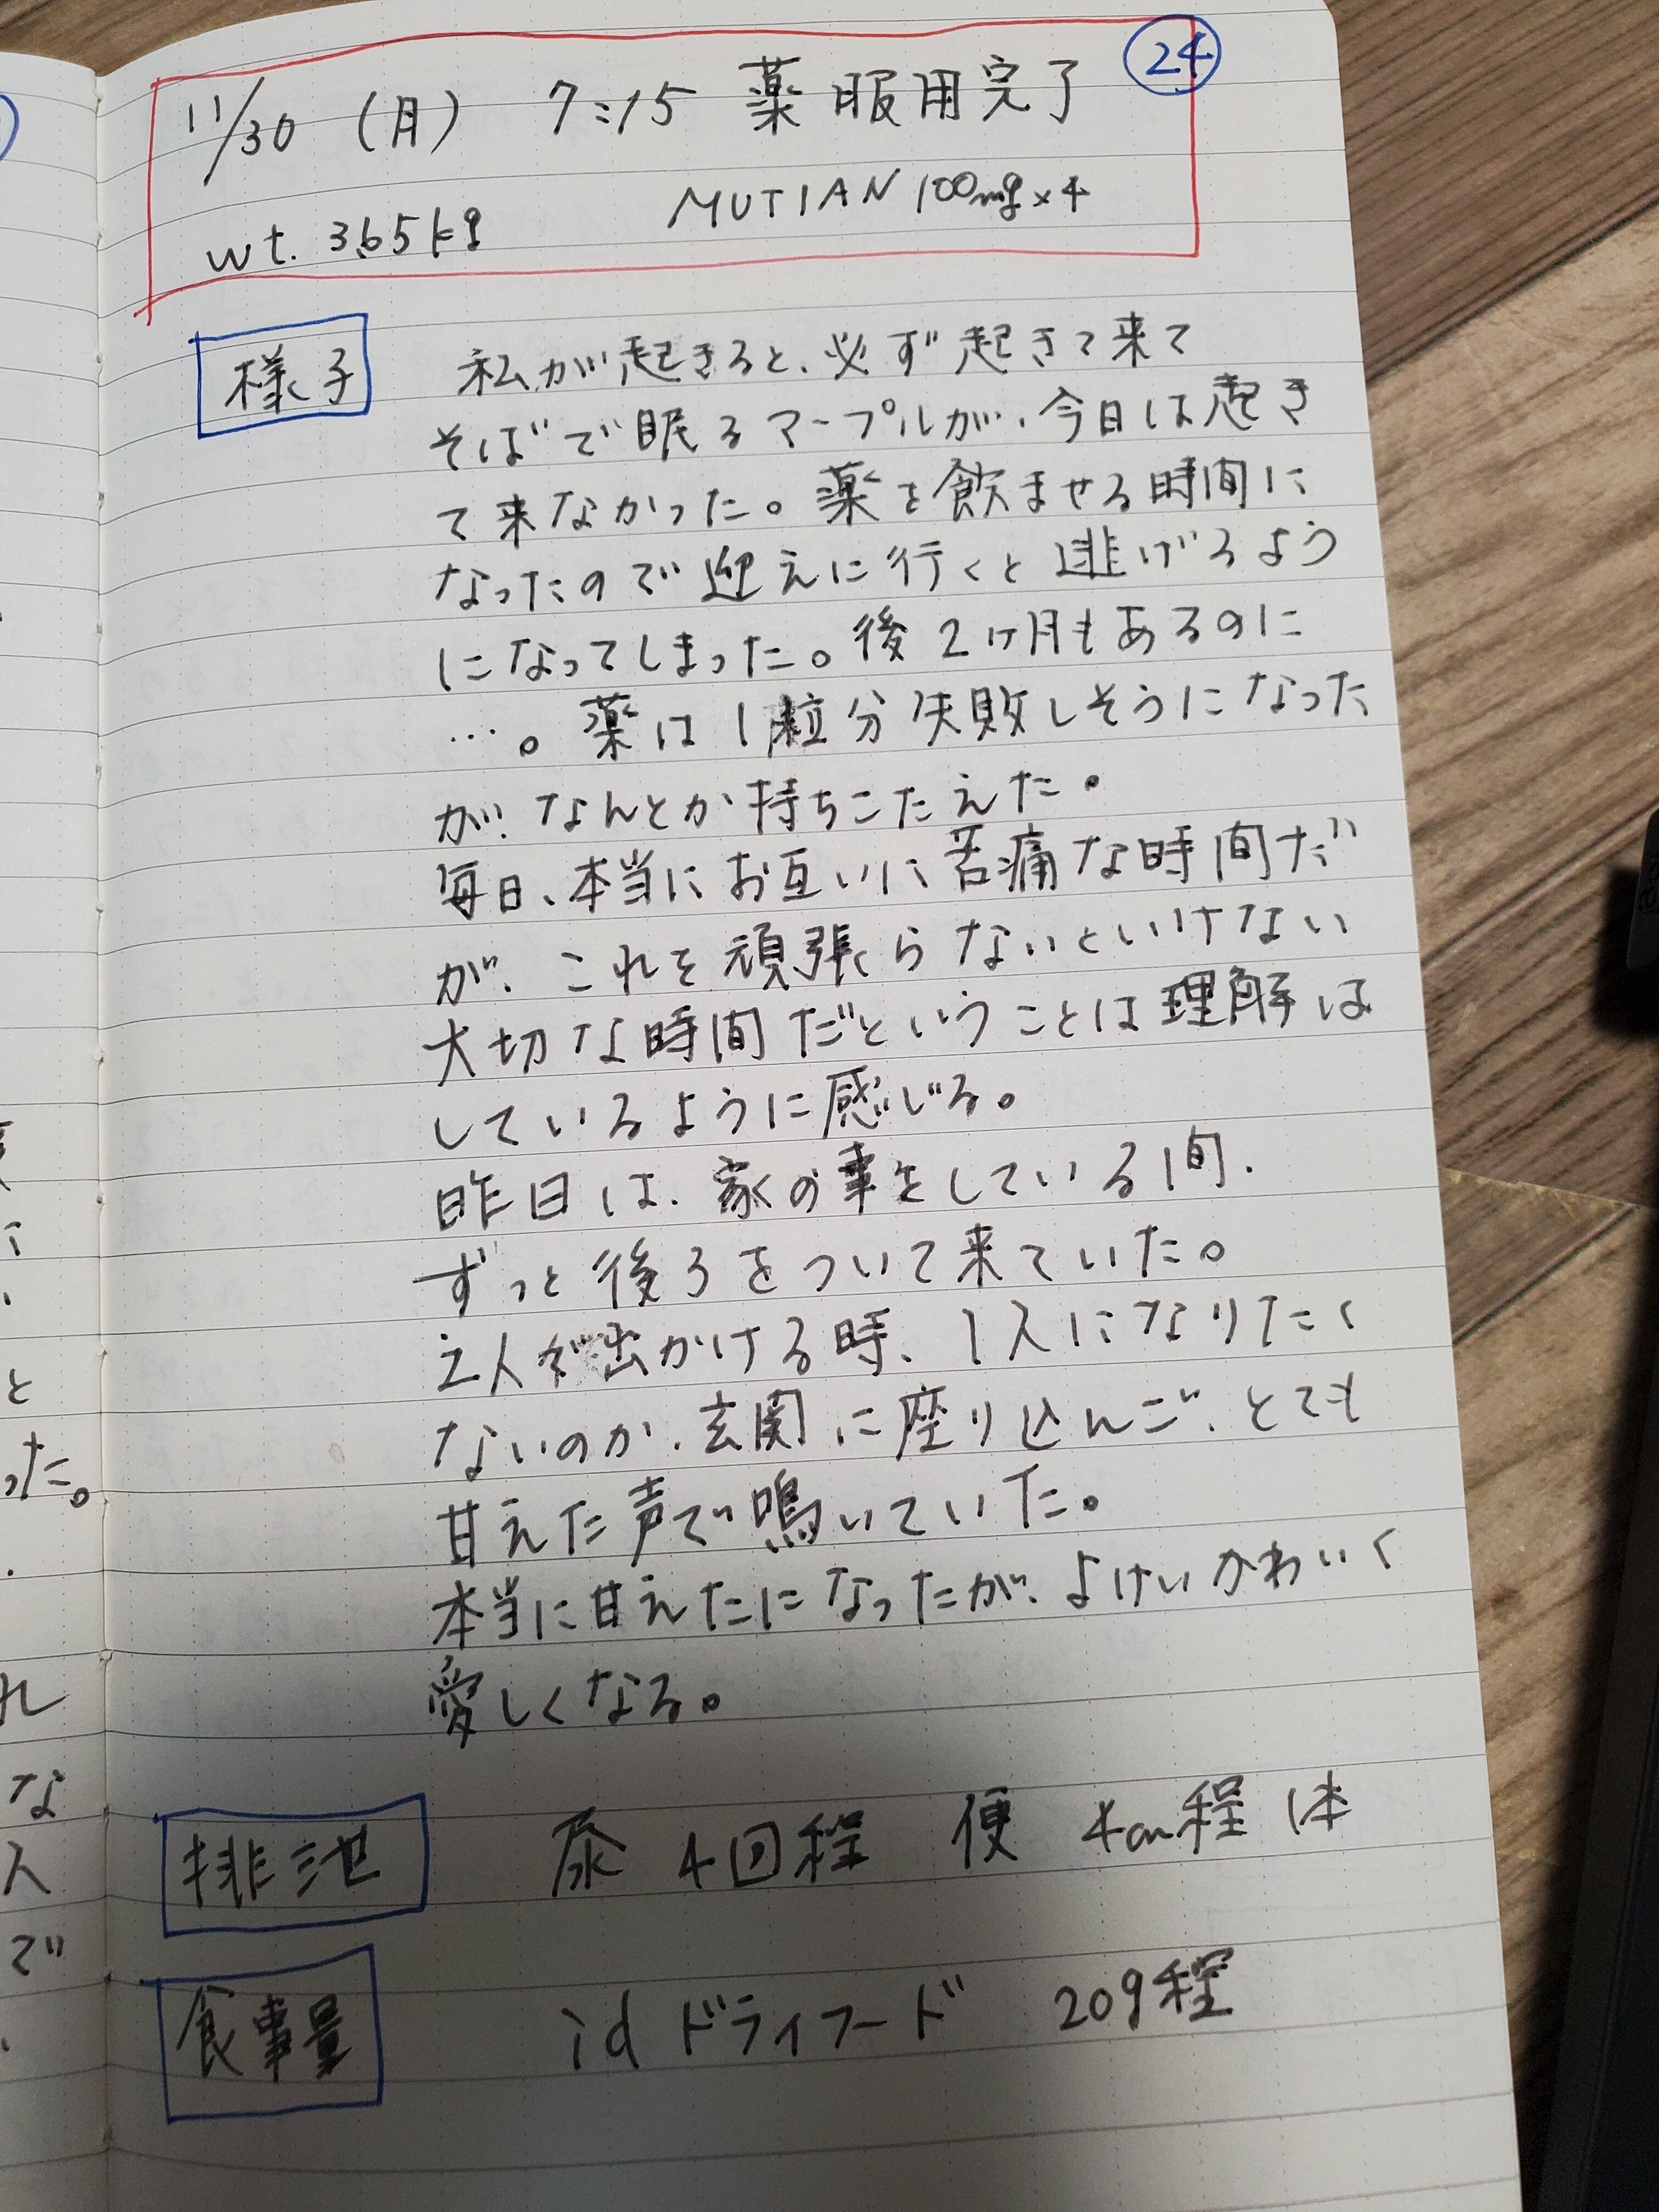 24
11/30 (月) 7:15 薬 服用完了
wt. 3.65kg MUTIAN 100mg×4
様子 私が起きると、必ず起きて来て
そばで眠るマープルが、今日は起き
て来なかった。薬を飲ませる時間に
なったので迎えに行くと逃げるよう
になってしまった。後2ヶ月もあるのに
…。薬は1粒分失敗しそうになった
が、なんとか持ちこたえた。
毎日、本当にお互いに苦痛な時間だ
が、これを頑張らないといけない
大切な時間だということは理解は
しているように感じる。
昨日は、家の事をしている間、
ずっと後ろをついて来ていた。
2人が出かける時、1人になりたく
ないのか、玄関に座り込んで、とても
甘えた声で鳴いていた。
本当に甘えたになったが、よけいかわいく
愛しくなる。
排泄 尿 4回程 便 4cm程 1本
食事量 id ドライフード 20g程
った。
と
れ
な
人
で